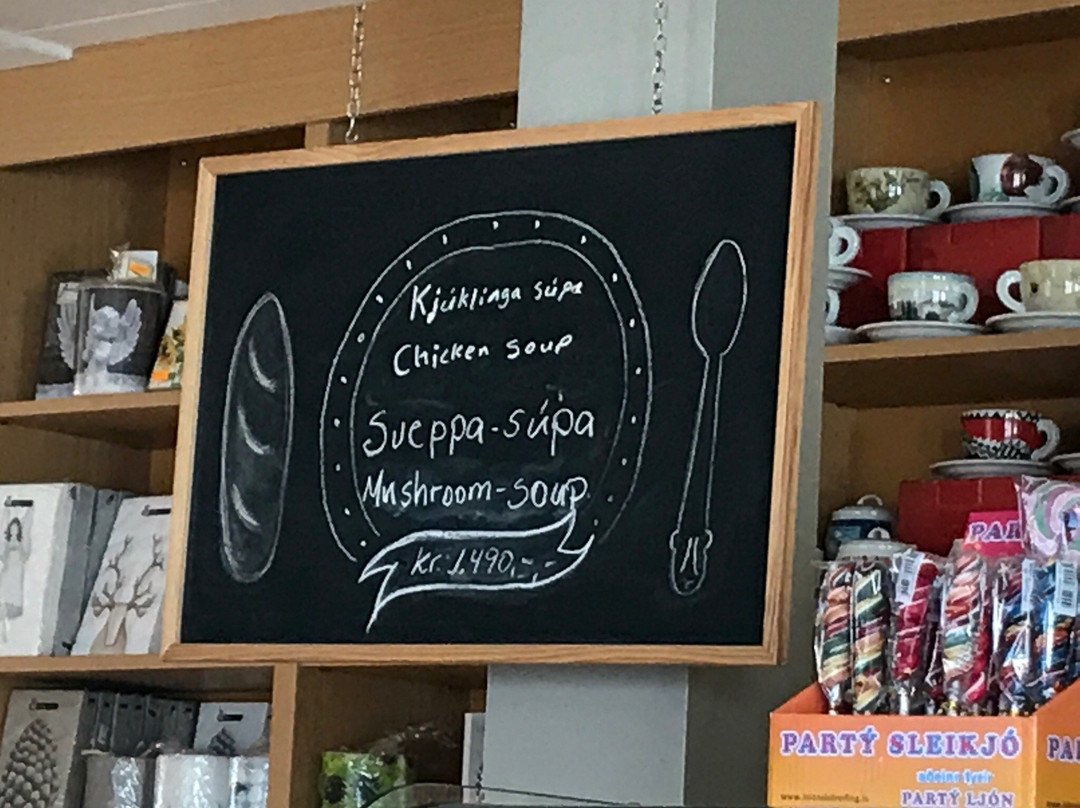 Kjúklinga súpa
Chicken soup
Sveppa-súpa
Mushroom-soup
Kr. 1.490,-
PARTÝ SLEIKJÓ
aðeins fyrir
PARTÝ LJÓN
PA
PAR